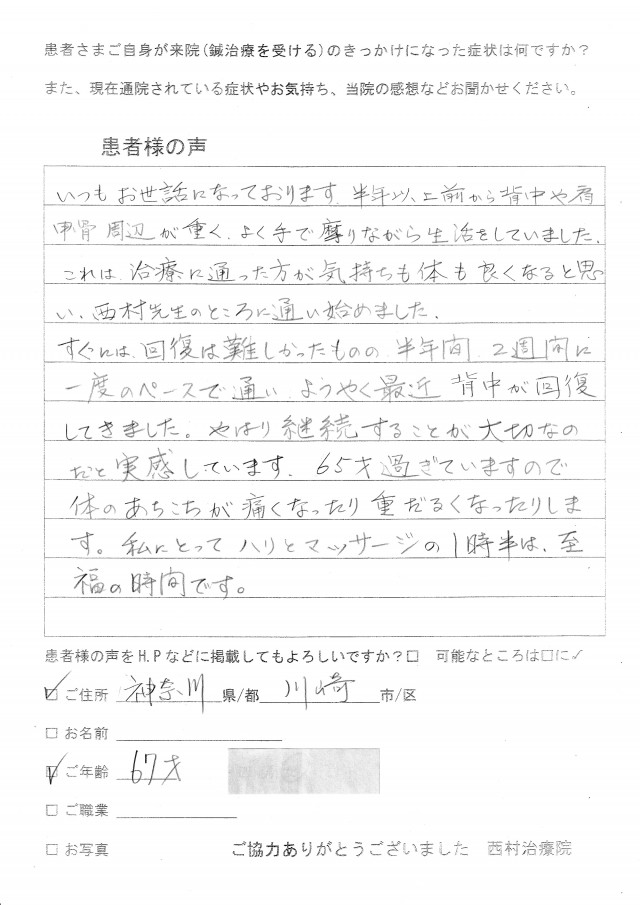 患者さまご自身が来院(鍼治療を受ける)のきっかけになった症状は何ですか?
また、現在通院されている症状やお気持ち、当院の感想などお聞かせください。
患者様の声
いつもお世話になっております。半年以上前から背中や肩
甲骨周辺が重く、よく手で摩りながら生活をしていました。
これは、治療に通った方が気持ちも体も良くなると思
い、西村先生のところに通い始めました。
すぐには、回復は難しかったものの、半年間、2週間に
一度のペースで通い、ようやく最近 背中が回復
してきました。やはり継続することが大切なの
だと実感しています。65才過ぎていますので
体のあちこちが痛くなったり重だるくなったりしま
す。私にとってハリとマッサージの1時半は、至
福の時間です。
患者様の声をH.Pなどに掲載してもよろしいですか?□ 可能なところは□に✓
☑ご住所 神奈川 県/都 川崎 市/区
□お名前
☑ご年齢 67才
□ご職業
□お写真 ご協力ありがとうございました 西村治療院